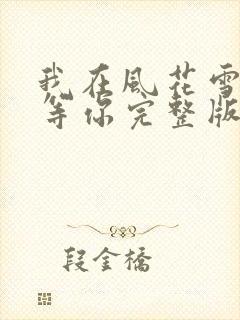 我在風花雪
等你完整版
段金橋